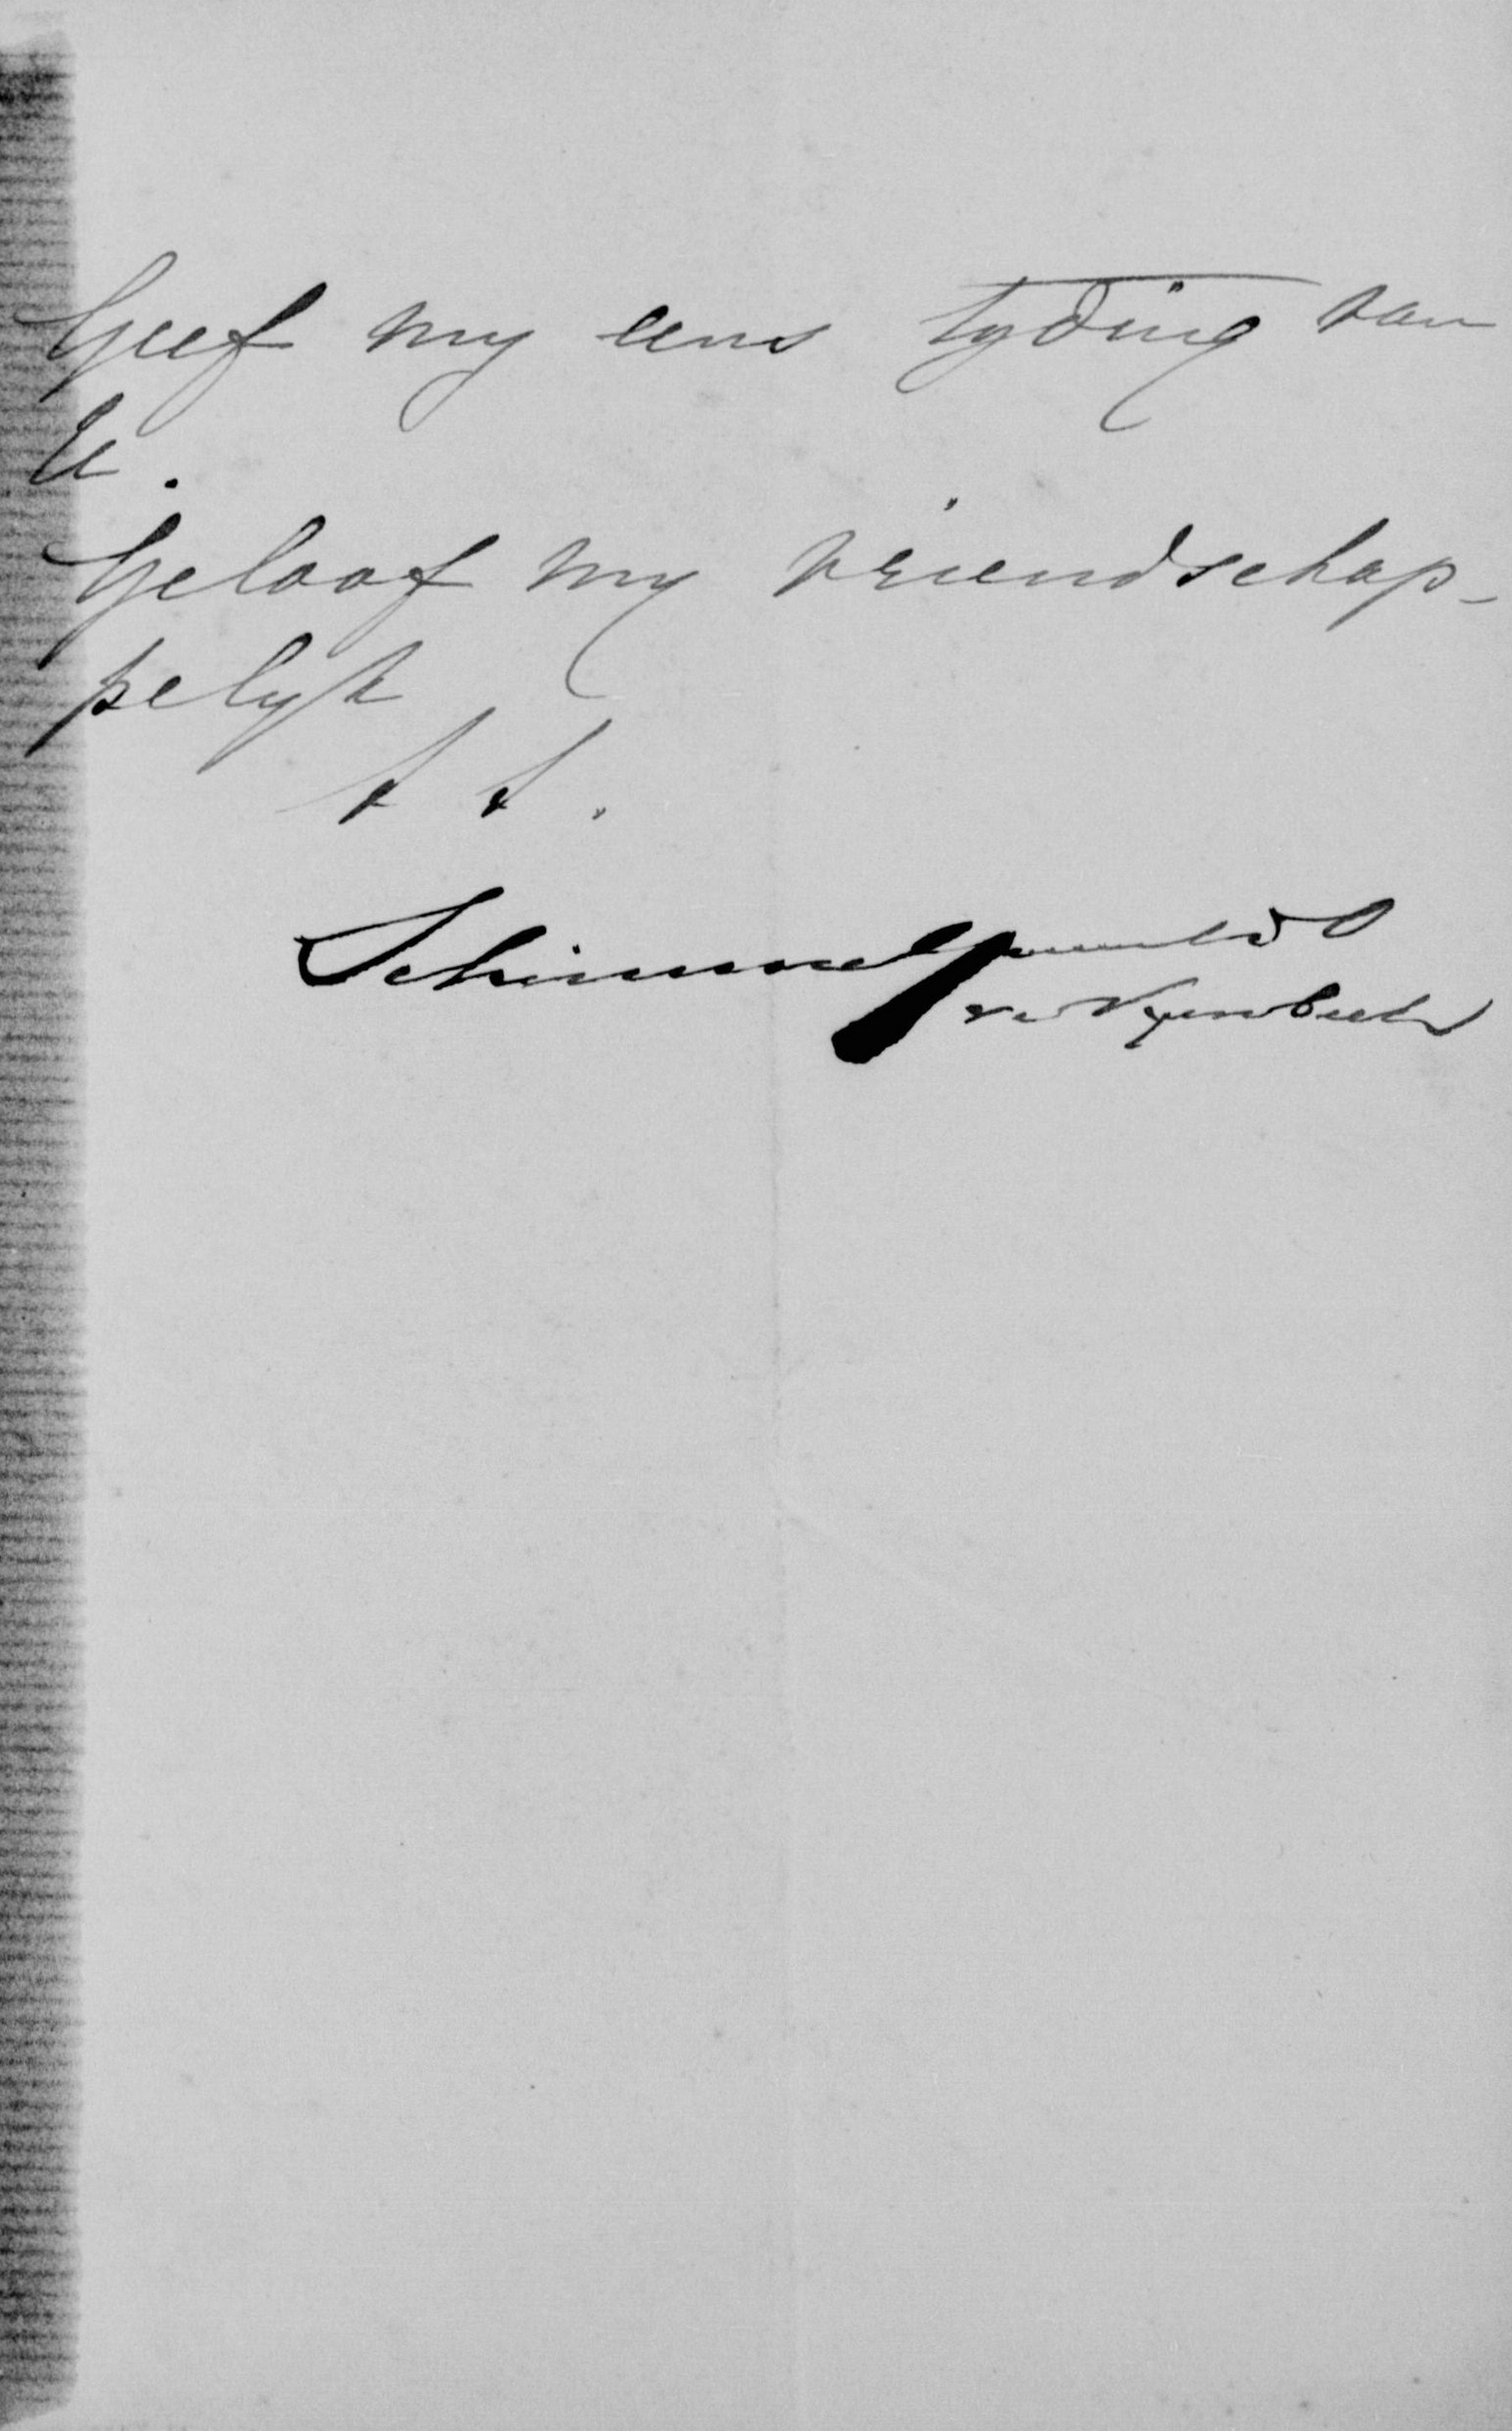 Geef my eens tyding van
U.
Geloof my vriendschap-
pelyk
t t.
Schimmelpenninck
v. Nyenbeek